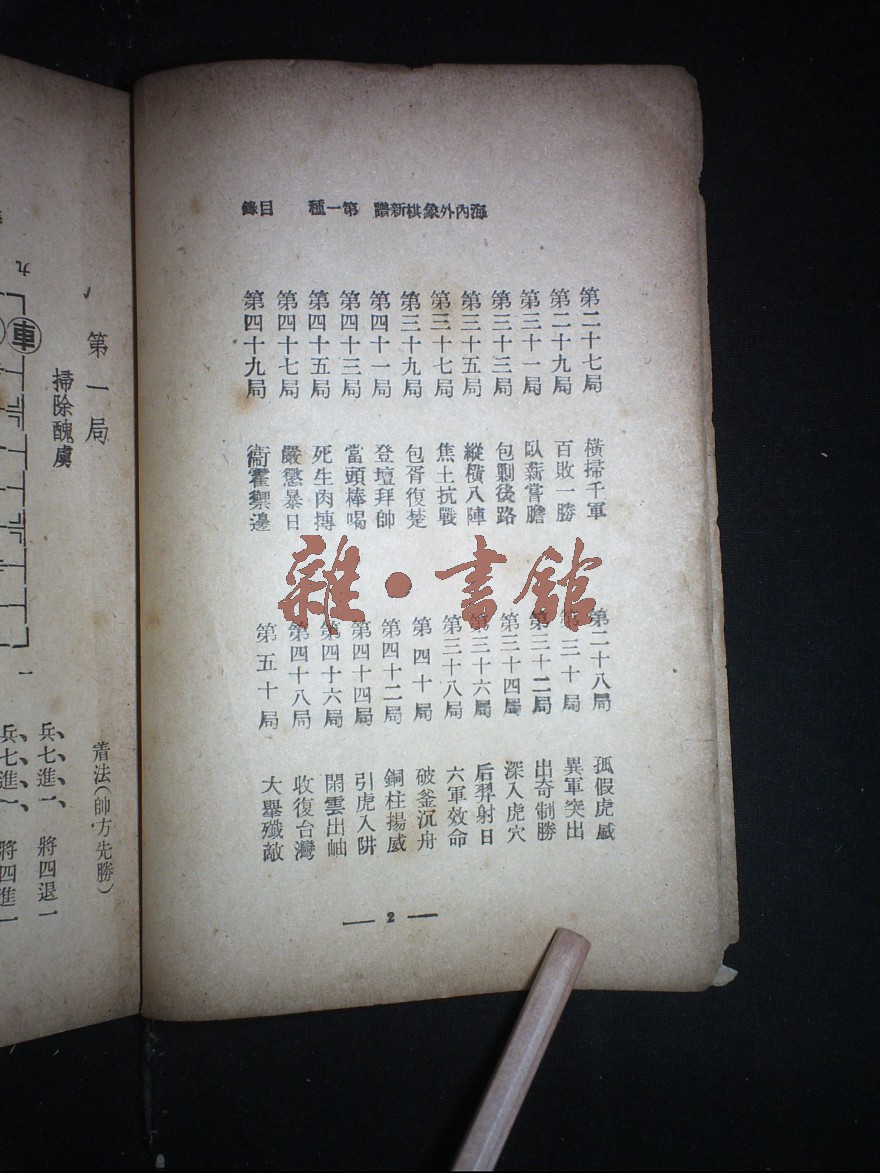 海內外象棋新譜　第一種　目錄
第二十七局　橫掃千軍
第二十九局　百敗一勝
第三十一局　臥薪嘗膽
第三十三局　包剿後路
第三十五局　縱橫八陣
第三十七局　焦土抗戰
第三十九局　包胥復楚
第四十一局　登壇拜帥
第四十三局　當頭棒喝
第四十五局　死生肉搏
第四十七局　嚴懲暴日
第四十九局　衞霍禦邊
第二十八局　孤假虎威
第三十局　異軍突出
第三十二局　出奇制勝
第三十四局　深入虎穴
第三十六局　后羿射日
第三十八局　六軍效命
第四十局　破釜沉舟
第四十二局　銅柱揚威
第四十四局　引虎入阱
第四十六局　閑雲出岫
第四十八局　收復台灣
第五十局　大舉殲敵
— 2 —
雜·書舘
第一局
掃除醜虜
九
車
一
着法(帥方先勝)
兵七進一、　將四退一
兵七進一、　將四進一